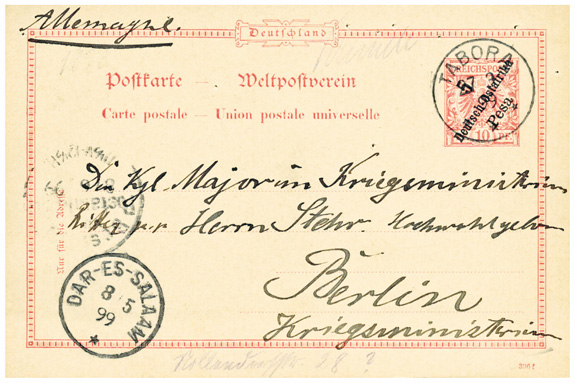 Allemagne.
Deutschland
Postkarte - Weltpostverein
Carte postale — Union postale universelle
REICHSPOST
Deutsch-Ostafrika
5 Pesa
10 PF.
TABORA
Kgl. Major im Kriegsministerium
Ritter p.p. Herrn Stehr. Hochwohlgeboren
Berlin
Kriegsministerium
Nur für die Adresse
DAR-ES-SALAAM
8/5
99
*